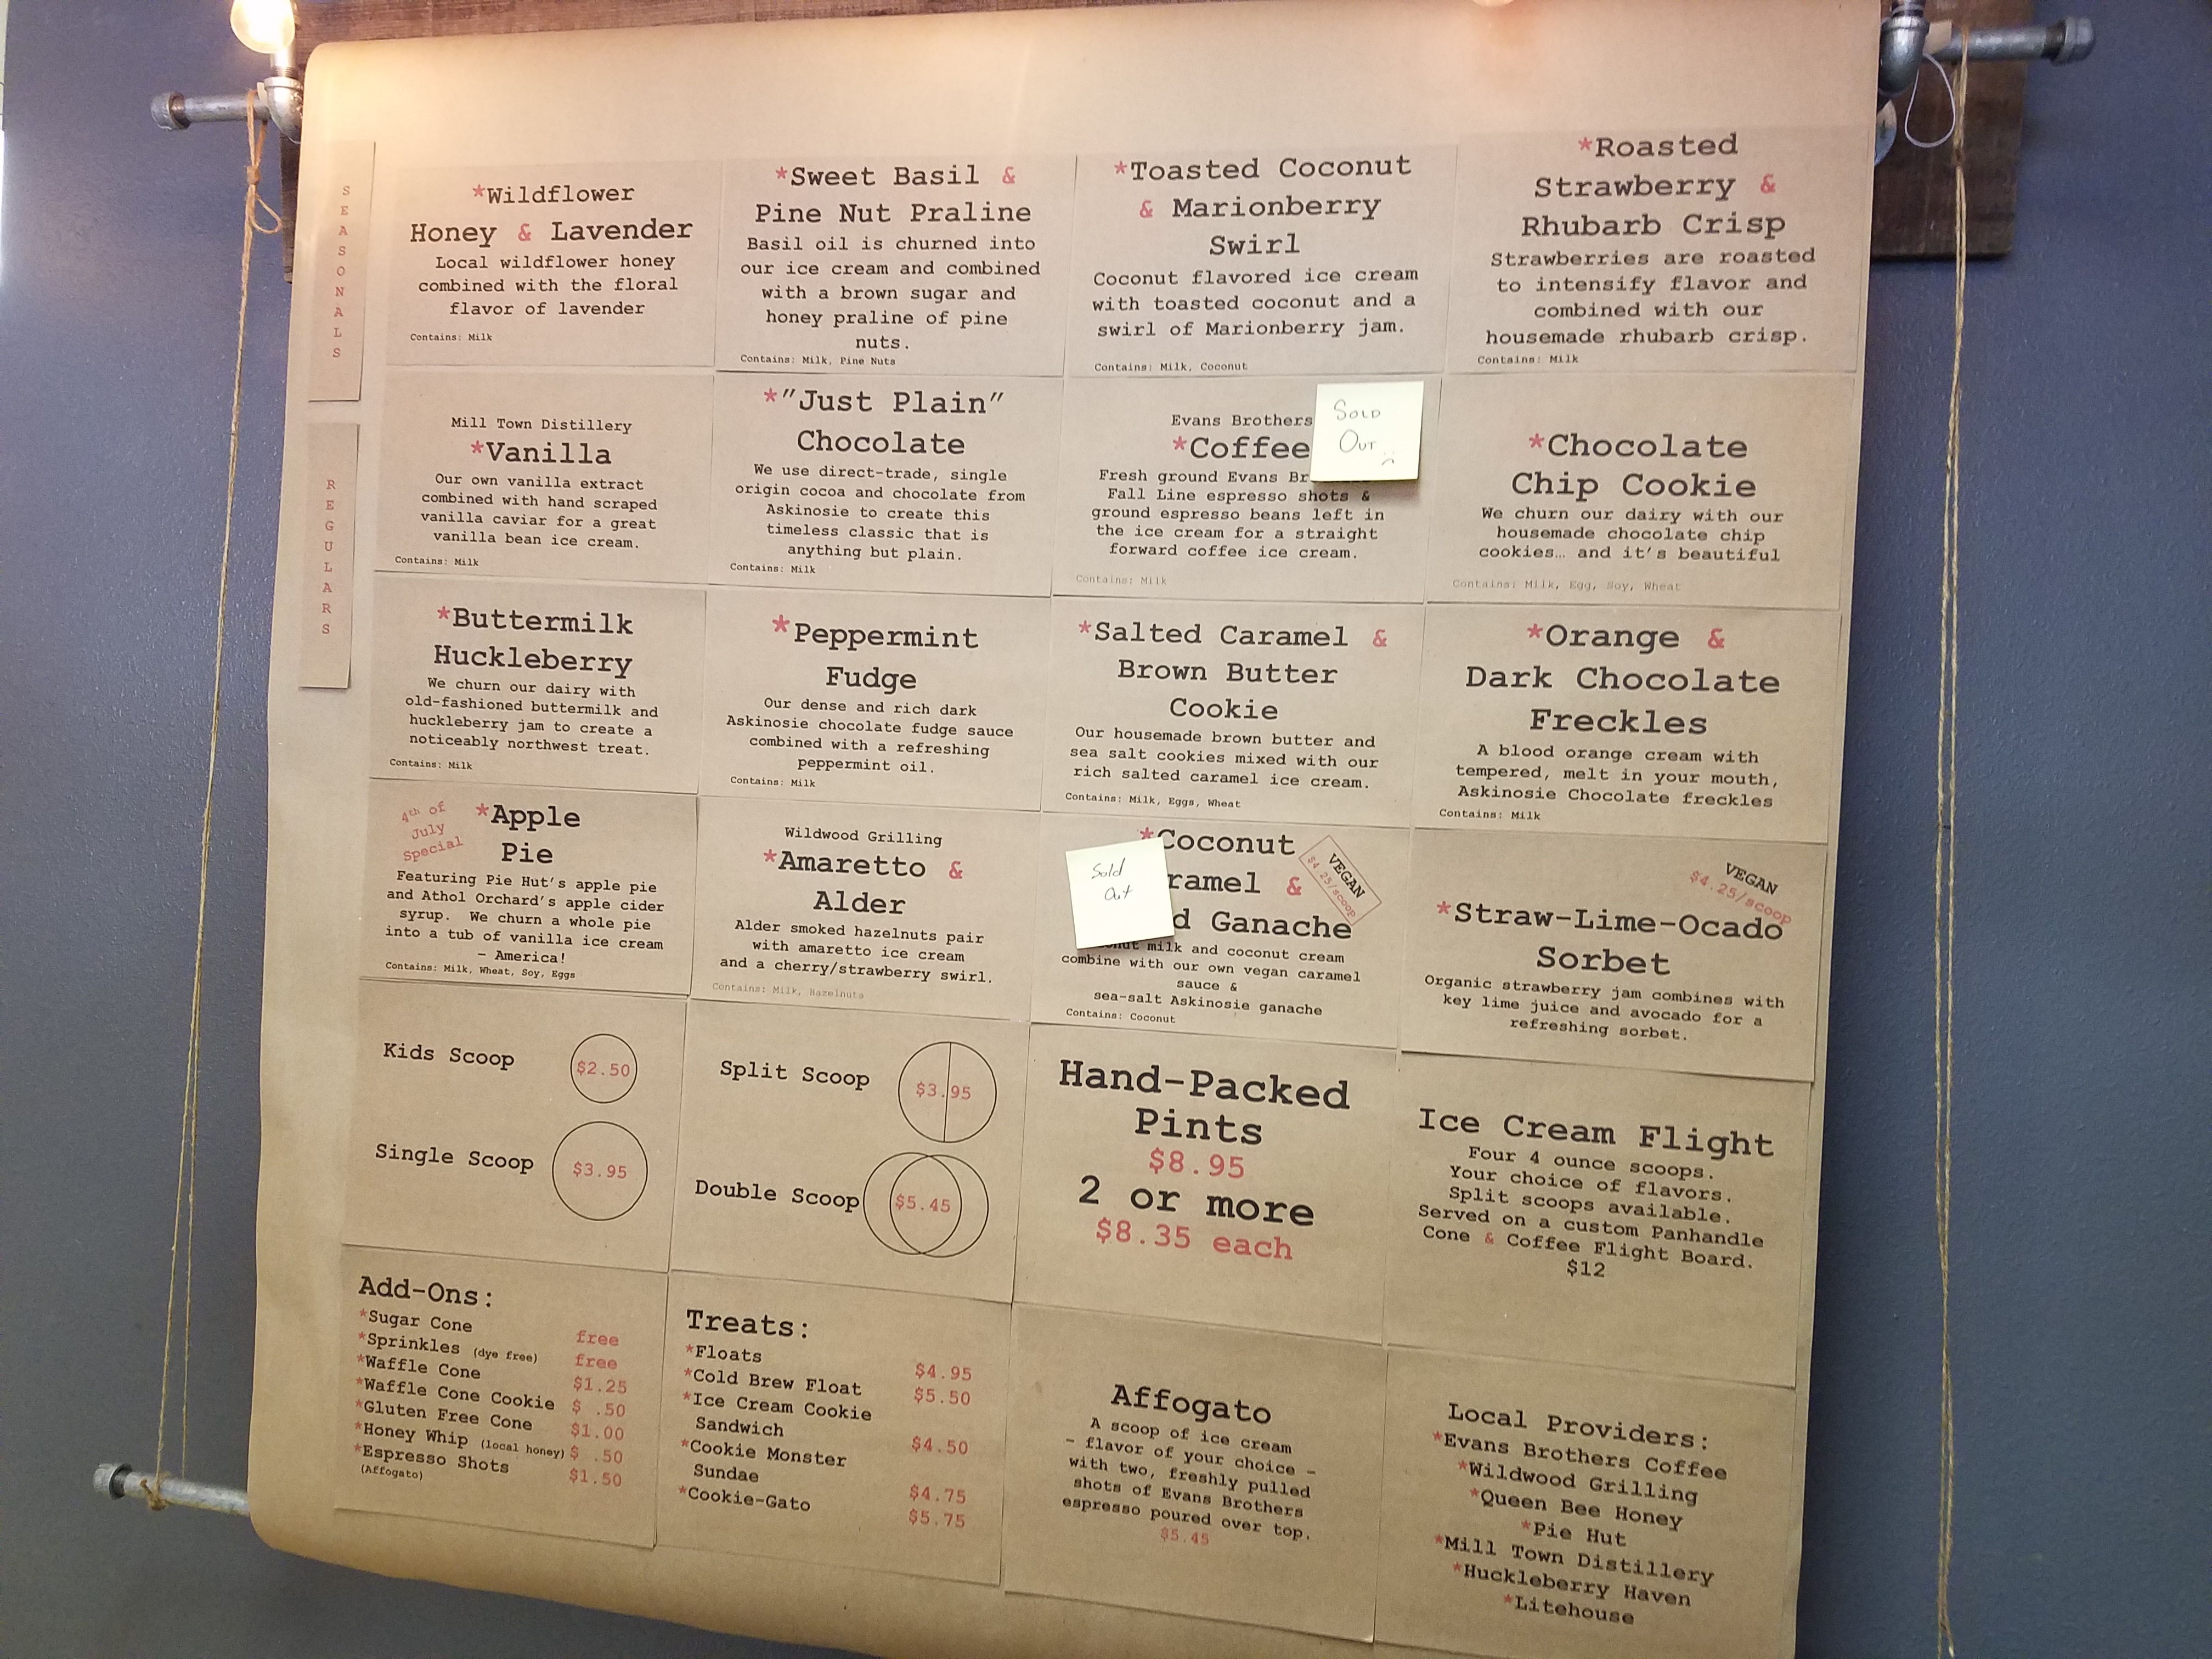 SEASONALS
*Wildflower
Honey & Lavender
Local wildflower honey
combined with the floral
flavor of lavender
Contains: Milk
*Sweet Basil &
Pine Nut Praline
Basil oil is churned into
our ice cream and combined
with a brown sugar and
honey praline of pine
nuts.
Contains: Milk, Pine Nuts
*Toasted Coconut
& Marionberry
Swirl
Coconut flavored ice cream
with toasted coconut and a
swirl of Marionberry jam.
Contains: Milk, Coconut
*Roasted
Strawberry &
Rhubarb Crisp
Strawberries are roasted
to intensify flavor and
combined with our
housemade rhubarb crisp.
Contains: Milk
REGULARS
Mill Town Distillery
*Vanilla
Our own vanilla extract
combined with hand scraped
vanilla caviar for a great
vanilla bean ice cream.
Contains: Milk
*"Just Plain"
Chocolate
We use direct-trade, single
origin cocoa and chocolate from
Askinosie to create this
timeless classic that is
anything but plain.
Contains: Milk
Evans Brothers
*Coffee
Sold
Out
Fresh ground Evans Br
Fall Line espresso shots &
ground espresso beans left in
the ice cream for a straight
forward coffee ice cream.
Contains: Milk
*Chocolate
Chip Cookie
We churn our dairy with our
housemade chocolate chip
cookies… and it's beautiful
Contains: Milk, Egg, Soy, Wheat
*Buttermilk
Huckleberry
We churn our dairy with
old-fashioned buttermilk and
huckleberry jam to create a
noticeably northwest treat.
Contains: Milk
*Peppermint
Fudge
Our dense and rich dark
Askinosie chocolate fudge sauce
combined with a refreshing
peppermint oil.
Contains: Milk
*Salted Caramel &
Brown Butter
Cookie
Our housemade brown butter and
sea salt cookies mixed with our
rich salted caramel ice cream.
Contains: Milk, Eggs, Wheat
*Orange &
Dark Chocolate
Freckles
A blood orange cream with
tempered, melt in your mouth,
Askinosie Chocolate freckles
Contains: Milk
4th of
July
Special
*Apple
Pie
Featuring Pie Hut's apple pie
and Athol Orchard's apple cider
syrup. We churn a whole pie
into a tub of vanilla ice cream
- America!
Contains: Milk, Wheat, Soy, Eggs
Wildwood Grilling
*Amaretto &
Alder
Alder smoked hazelnuts pair
with amaretto ice cream
and a cherry/strawberry swirl.
Contains: Milk, Hazelnuts
Sold
Out
*Coconut
ramel &
d Ganache
VEGAN
$4.25/scoop
nut milk and coconut cream
combine with our own vegan caramel
sauce &
sea-salt Askinosie ganache
Contains: Coconut
VEGAN
$4.25/scoop
*Straw-Lime-Ocado
Sorbet
Organic strawberry jam combines with
key lime juice and avocado for a
refreshing sorbet.
Kids Scoop $2.50
Single Scoop $3.95
Split Scoop $3.95
Double Scoop $5.45
Hand-Packed
Pints
$8.95
2 or more
$8.35 each
Ice Cream Flight
Four 4 ounce scoops.
Your choice of flavors.
Split scoops available.
Served on a custom Panhandle
Cone & Coffee Flight Board.
$12
Add-Ons:
*Sugar Cone free
*Sprinkles (dye free) free
*Waffle Cone $1.25
*Waffle Cone Cookie $ .50
*Gluten Free Cone $1.00
*Honey Whip (local honey) $ .50
*Espresso Shots $1.50
(Affogato)
Treats:
*Floats $4.95
*Cold Brew Float $5.50
*Ice Cream Cookie
Sandwich $4.50
*Cookie Monster
Sundae $4.75
*Cookie-Gato $5.75
Affogato
A scoop of ice cream
- flavor of your choice -
with two, freshly pulled
shots of Evans Brothers
espresso poured over top.
$5.45
Local Providers:
*Evans Brothers Coffee
*Wildwood Grilling
*Queen Bee Honey
*Pie Hut
*Mill Town Distillery
*Huckleberry Haven
*Litehouse